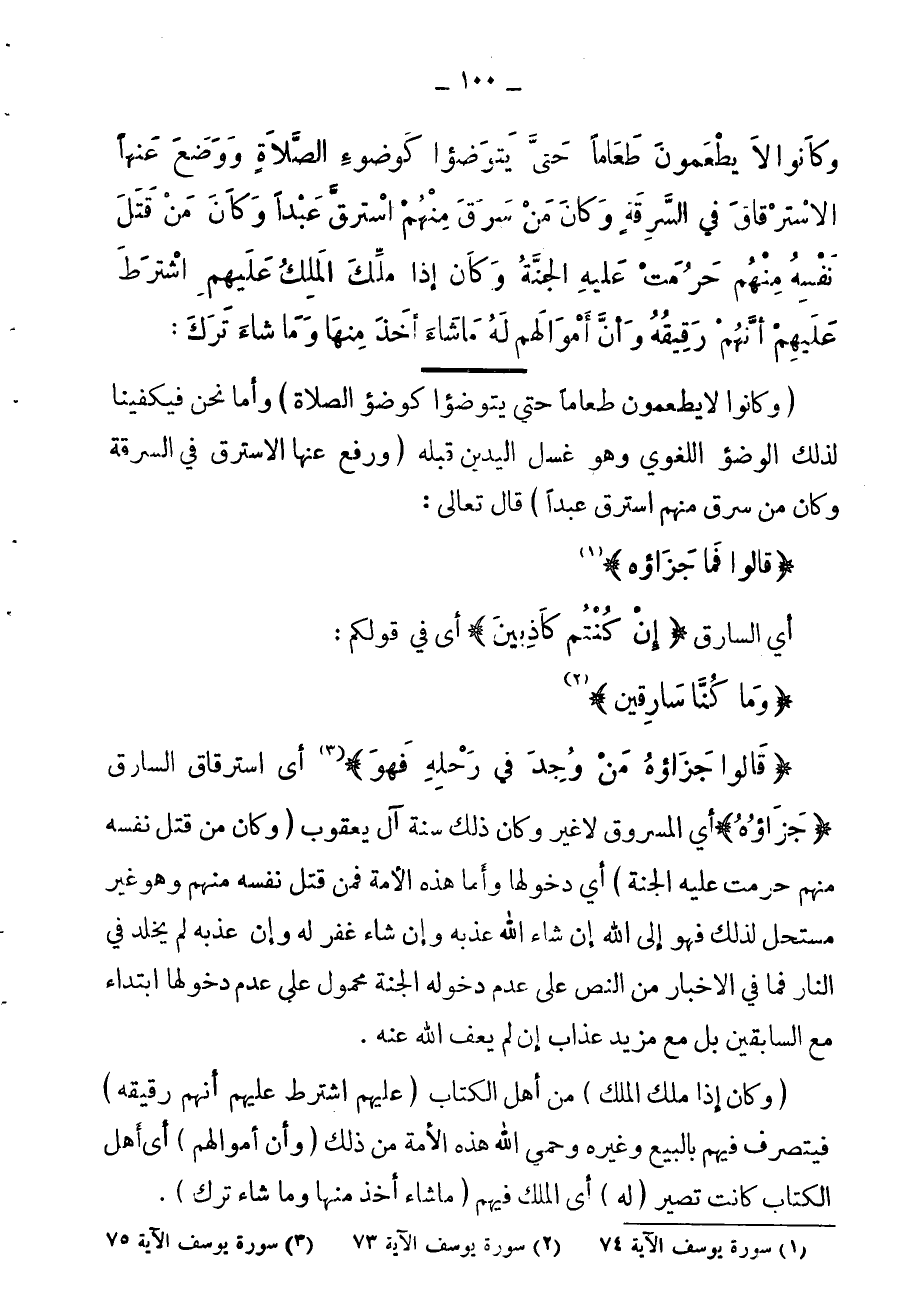 ـ ١٠٠ ـ
وكَانوا لاَ يطْعَمونَ طَعَاماً حَتىَّ يَتوَضؤا كَوضوءِ الصَّلاَةِ وَوَضَعَ عَنهاَ
الاسْترْقاقَ في السَّرِقَةِ وَكَانَ مَنْ سَرَقَ مِنْهُمْ اسْترِقَّ عَبْداً وَكَانَ مَنْ قَتَلَ
نَفْسِهُ مِنْهُم حَرُمَتْ عَليهِ الجنَّةُ وَكَان إذا ملِّكَ المَلِكُ عَلَيهم اشْترَطَ
عَلَيهِمْ أنَّهُمْ رَقِيقُهُ وَأنَّ أَمْوَالَهم لَهُ مَاشَاءَ أخَذَ مِنهَا وَمَا شاءَ تَرَكَ :
( وكانوا لايطعمون طعاماً حتي يتوضؤا كوضؤ الصلاة ) وأما نحن فيكفينا
لذلك الوضؤ اللغوي وهو غسل اليدين قبله ( ورفع عنها الاسترق في السرقة
وكان من سرق منهم استرق عبداً ) قال تعالى :
﴿ قالوا فَما جَزَاؤه ﴾(١)
أي السارق ﴿ إنْ كُنْتُم كَاَذِبينَ ﴾ أى في قولكم :
﴿ وَمَا كُنَّا سَارِقين ﴾(٢)
﴿ قَالوا جَزَاؤهُ مَنْ وُجِدَ في رَحْلِهِ فَهوَ ﴾(٣) أى استرقاق السارق
﴿ جَزَاؤُهُ ﴾ أي المسروق لاغير وكان ذلك سنة آل يعقوب ( وكان من قتل نفسه
منهم حرمت عليه الجنة ) أي دخولها وأما هذه الأمة فمن قتل نفسه منهم وهو غير
مستحل لذلك فهو إلى الله إن شاء الله عذبه وإن شاء غفر له وإن عذبه لم يخلد في
النار فما في الاخبار من النص على عدم دخوله الجنة محمول علي عدم دخولها ابتداء
مع السابقين بل مع مزيد عذاب إن لم يعف الله عنه .
( وكان إذا ملك الملك ) من أهل الكتاب ( عليهم اشترط عليهم أنهم رقيقه )
فيتصرف فيهم بالبيع وغيره وحمي الله هذه الأمة من ذلك ( وأن أموالهم ) أى أهل
الكتاب كانت تصير ( له ) أى الملك فيهم ( ماشاء أخذ منها وما شاء ترك ) .
(١) سورة يوسف الآية ٧٤ (٢) سورة يوسف الآية ٧٣ (٣) سورة يوسف الآية ٧٥